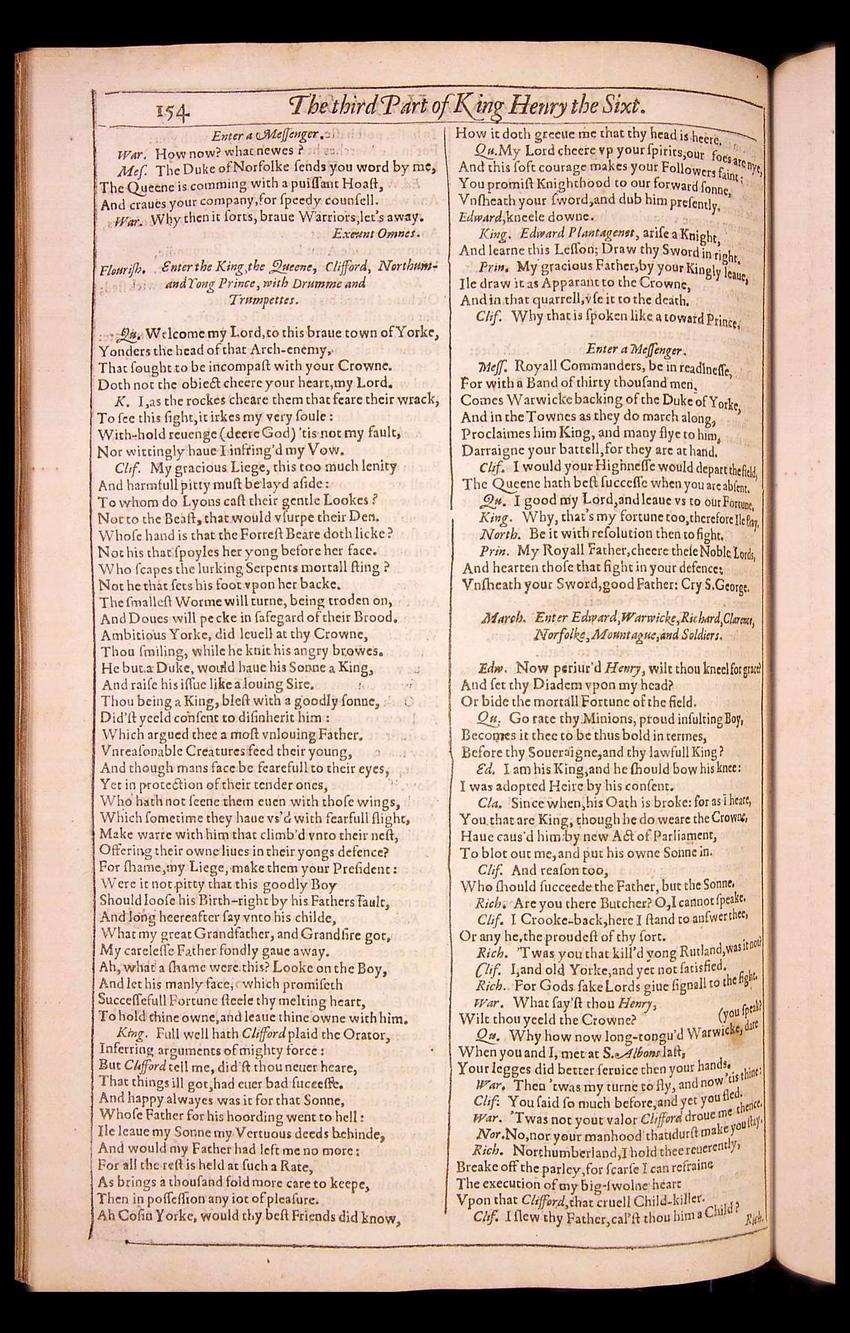 154
The third Part of King Henry the Sixt.
Enter a Meſſenger.
War. How now? what newes?
Meſ. The Duke of Norfolke ſends you word by me,
The Queene is comming with a puiſſant Hoaſt,
And craues your company, for ſpeedy counſell.
War. Why then it ſorts, braue Warriors, let's away.
Exeunt Omnes.
Flouriſh. Enter the King, the Queene, Clifford, Northum-
and Yong Prince, with Drumme and
Trumpettes.
Qu. Welcome my Lord, to this braue town of Yorke,
Yonders the head of that Arch-enemy,
That ſought to be incompaſt with your Crowne.
Doth not the obiect cheere your heart, my Lord.
K. I, as the rockes cheare them that feare their wrack,
To ſee this ſight, it irkes my very ſoule:
With-hold reuenge (deere God) 'tis not my fault,
Nor wittingly haue I infring'd my Vow.
Clif. My gracious Liege, this too much lenity
And harmfull pitty muſt be layd aſide:
To whom do Lyons caſt their gentle Lookes?
Not to the Beaſt, that would vſurpe their Den.
Whoſe hand is that the Forreſt Beare doth licke?
Not his that ſpoyles her yong before her face.
Who ſcapes the lurking Serpents mortall ſting?
Not he that ſets his foot vpon her backe.
The ſmalleſt Worme will turne, being troden on,
And Doues will pecke in ſafegard of their Brood.
Ambitious Yorke, did leuell at thy Crowne,
Thou ſmiling, while he knit his angry browes.
He but a Duke, would haue his Sonne a King,
And raiſe his iſſue like a louing Sire.
Thou being a King, bleſt with a goodly ſonne,
Did'ſt yeeld conſent to diſinherit him:
Which argued thee a moſt vnlouing Father.
Vnreaſonable Creatures feed their young,
And though mans face be fearefull to their eyes,
Yet in protection of their tender ones,
Who hath not ſeene them euen with thoſe wings,
Which ſometime they haue vs'd with fearfull flight,
Make warre with him that climb'd vnto their neſt,
Offering their owne liues in their yongs defence?
For ſhame, my Liege, make them your Preſident:
Were it not pitty that this goodly Boy
Should looſe his Birth-right by his Fathers fault,
And long heereafter ſay vnto his childe,
What my great Grandfather, and Grandſire got,
My careleſſe Father fondly gaue away.
Ah, what a ſhame were this? Looke on the Boy,
And let his manly face, which promiſeth
Succeſſefull Fortune ſteele thy melting heart,
To hold thine owne, and leaue thine owne with him.
King. Full well hath Clifford plaid the Orator,
Inferring arguments of mighty force:
But Clifford tell me, did'ſt thou neuer heare,
That things ill got, had euer bad ſucceſſe.
And happy alwayes was it for that Sonne,
Whoſe Father for his hoording went to hell:
Ile leaue my Sonne my Vertuous deeds behinde,
And would my Father had left me no more:
For all the reſt is held at ſuch a Rate,
As brings a thouſand fold more care to keepe,
Then in poſſeſſion any iot of pleaſure.
Ah Coſin Yorke, would thy beſt Friends did know,
How it doth greeue me that thy head is heere.
Qu. My Lord cheere vp your ſpirits, our foes are nye,
And this ſoft courage makes your Followers faint:
You promiſt Knighthood to our forward ſonne,
Vnſheath your ſword, and dub him preſently.
Edward, kneele downe.
King. Edward Plantagenet, ariſe a Knight,
And learne this Leſſon; Draw thy Sword in right.
Prin. My gracious Father, by your Kingly leaue,
Ile draw it as Apparant to the Crowne,
And in that quarrell, vſe it to the death.
Clif. Why that is ſpoken like a toward Prince.
Enter a Meſſenger.
Meſſ. Royall Commanders, be in readineſſe,
For with a Band of thirty thouſand men,
Comes Warwicke backing of the Duke of Yorke,
And in the Townes as they do march along,
Proclaimes him King, and many flye to him,
Darraigne your battell, for they are at hand.
Clif. I would your Highneſſe would depart the field,
The Queene hath beſt ſucceſſe when you are abſent.
Qu. I good my Lord, and leaue vs to our Fortune,
King. Why, that's my fortune too, therefore Ile ſtay.
North. Be it with reſolution then to fight.
Prin. My Royall Father, cheere theſe Noble Lords,
And hearten thoſe that fight in your defence:
Vnſheath your Sword, good Father: Cry S. George.
March. Enter Edward, Warwicke, Richard, Clarence,
Norfolke, Mountague, and Soldiers.
Edw. Now periur'd Henry, wilt thou kneel for grace?
And ſet thy Diadem vpon my head?
Or bide the mortall Fortune of the field.
Qu. Go rate thy Minions, proud inſulting Boy,
Becomes it thee to be thus bold in termes,
Before thy Soueraigne, and thy lawfull King?
Ed. I am his King, and he ſhould bow his knee:
I was adopted Heire by his conſent.
Cla. Since when, his Oath is broke: for as I heare,
You that are King, though he do weare the Crowne,
Haue caus'd him by new Act of Parliament,
To blot out me, and put his owne Sonne in.
Clif. And reaſon too,
Who ſhould ſucceede the Father, but the Sonne.
Rich. Are you there Butcher? O, I cannot ſpeake.
Clif. I Crooke-back, here I ſtand to anſwer thee,
Or any he, the proudeſt of thy ſort.
Rich. 'Twas you that kill'd yong Rutland, was it not?
Clif. I, and old Yorke, and yet not ſatisfied.
Rich. For Gods ſake Lords giue ſignall to the fight.
War. What ſay'ſt thou Henry,
Wilt thou yeeld the Crowne? (you ſpeak?
Qu. Why how now long-tongu'd Warwicke, dare
When you and I, met at S. Albons laſt,
Your legges did better ſeruice then your hands.
War. Then 'twas my turne to fly, and now 'tis thine:
Clif. You ſaid ſo much before, and yet you fled.
War. 'Twas not your valor Clifford droue me thence.
Nor. No, nor your manhood that durſt make you ſtay.
Rich. Northumberland, I hold thee reuerently,
Breake off the parley, for ſcarſe I can refraine
The execution of my big-ſwolne heart
Vpon that Clifford, that cruell Child-killer.
Clif. I ſlew thy Father, cal'ſt thou him a Child?
Rich.